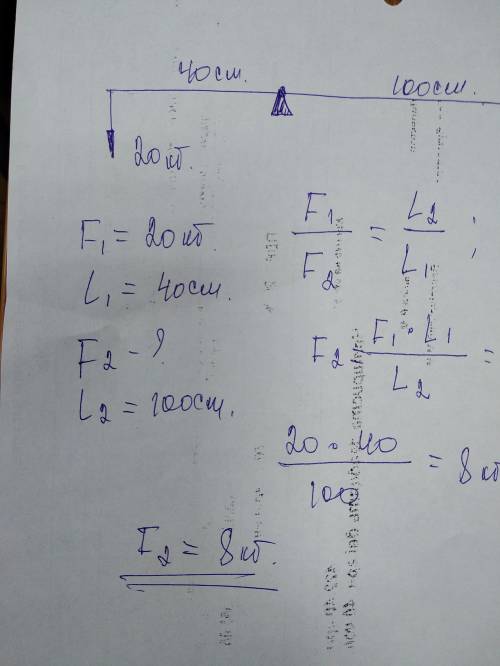 40см. 100см.
20кг.
F₁ = 20кг.
L₁ = 40см.
F₂ - ?
L₂ = 100см.
F₁/F₂ = L₂/L₁ ;
F₂ = F₁ · L₁/L₂ =
20 · 40/100 = 8 кг
F₂ = 8кг.